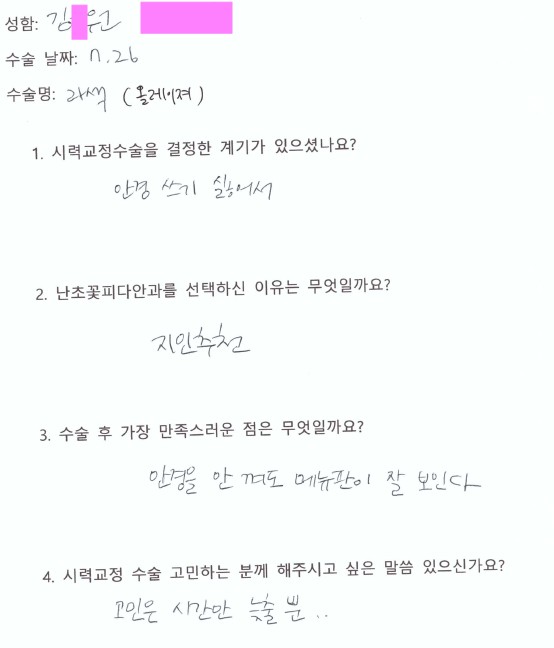 성함: 김 우근
수술 날짜: 7.26
수술명: 라섹 (올레이져)
1. 시력교정수술을 결정한 계기가 있으셨나요?
안경 쓰기 싫어서
2. 난초꽃피다안과를 선택하신 이유는 무엇일까요?
지인추천
3. 수술 후 가장 만족스러운 점은 무엇일까요?
안경을 안 껴도 메뉴판이 잘 보인다
4. 시력교정 수술 고민하는 분께 해주시고 싶은 말씀 있으신가요?
고민은 시간만 늦출 뿐..